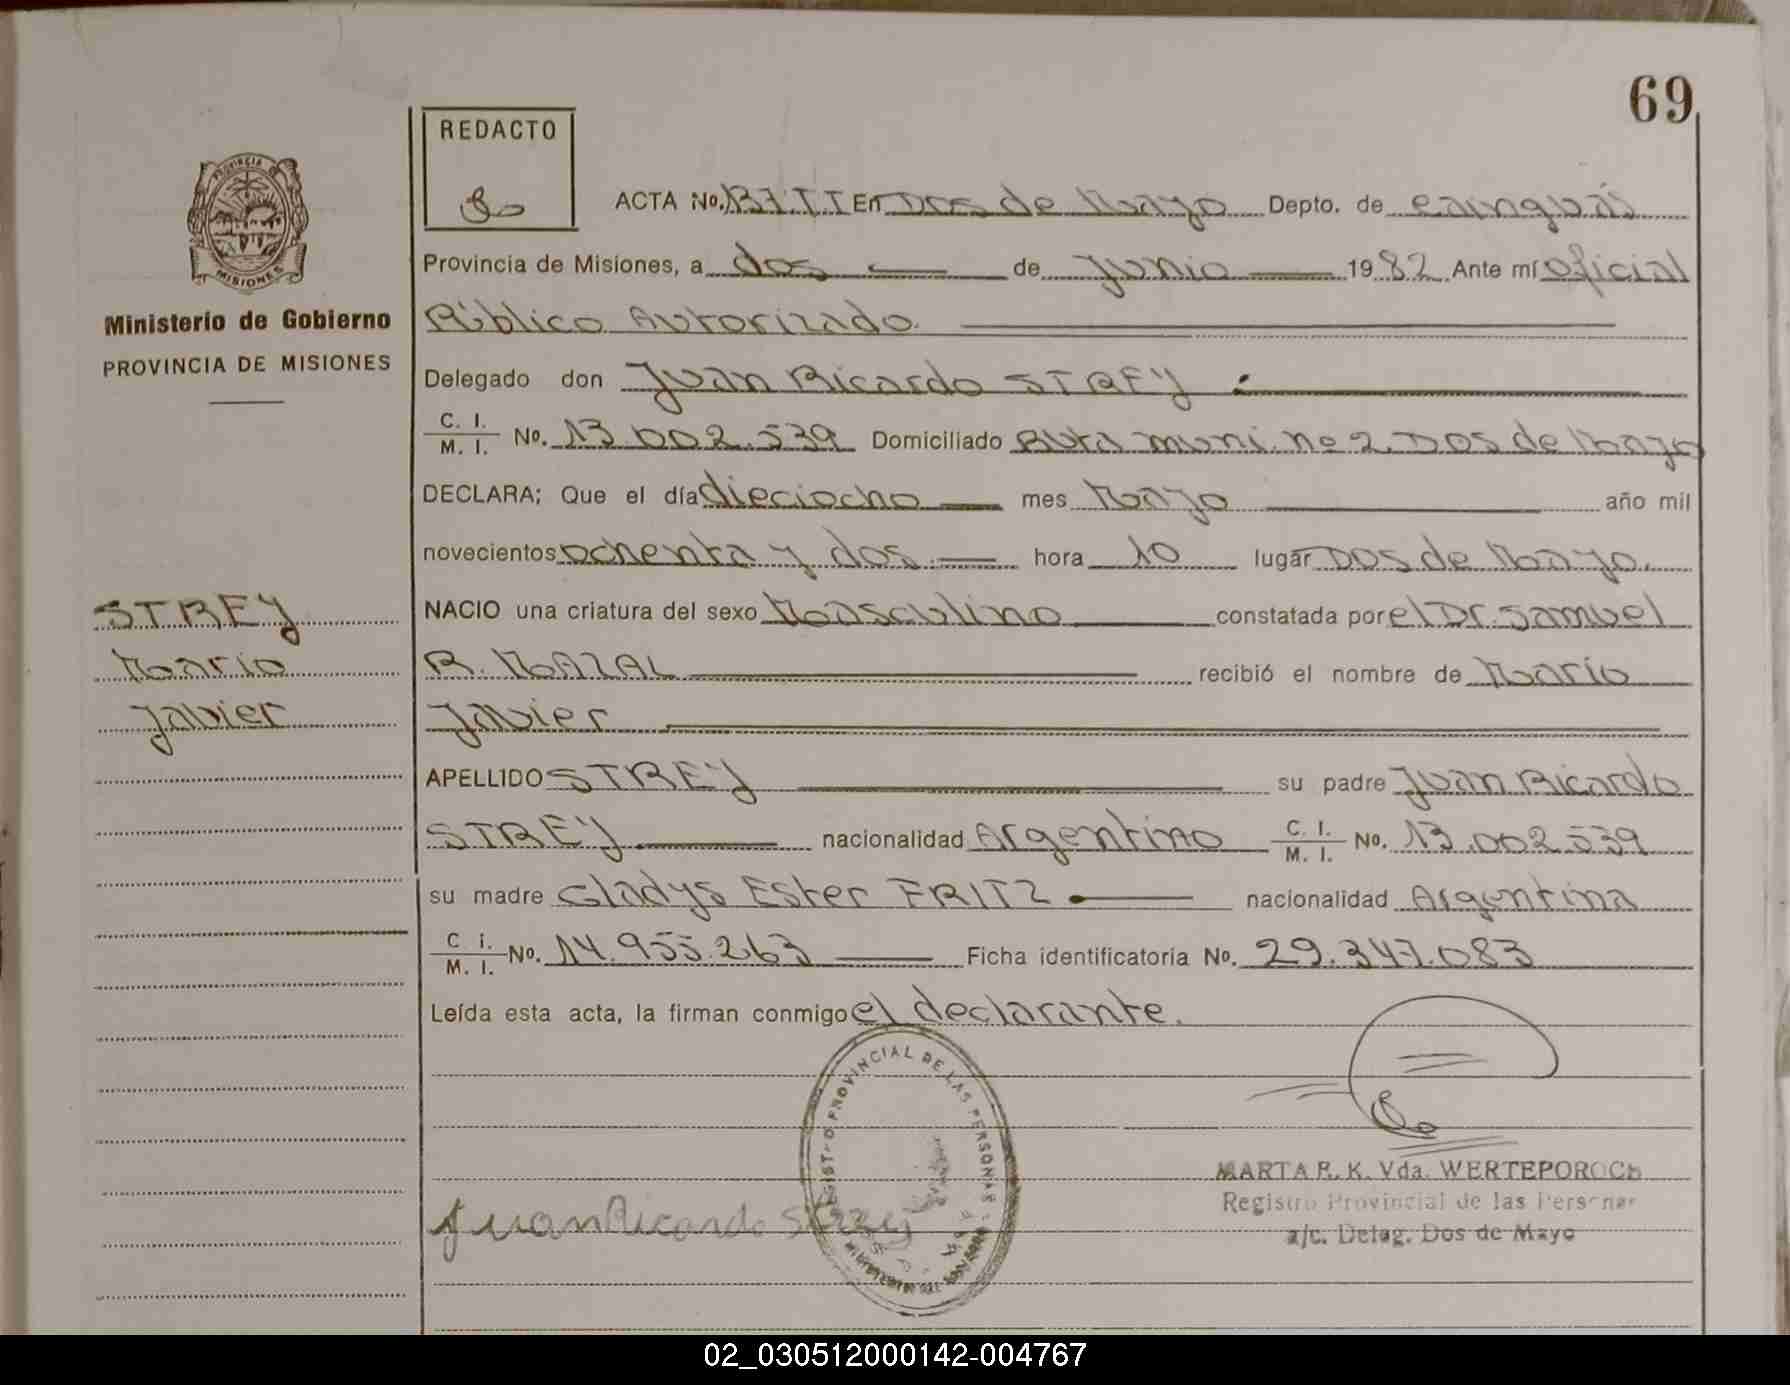 69
REDACTO
PROVINCIA DE
MISIONES
Ministerio de Gobierno
PROVINCIA DE MISIONES
ACTA No. 137.TI En DOS de Mayo Depto. de cainguás
Provincia de Misiones, a dos de Junio 1982 Ante mí oficial
Público Autorizado.
Delegado don Juan Ricardo STREY
C. I. / M. I. No. 13.002.539 Domiciliado Ruta muni. nº 2, DOS de Mayo
DECLARA; Que el día dieciocho mes Mayo año mil
novecientos ochenta y dos. hora 10 lugar DOS de Mayo.
STREY
Mario
Javier
NACIO una criatura del sexo Masculino constatada por el Dr. Samuel
R. MAZAL recibió el nombre de Mario
Javier
APELLIDO STREY su padre Juan Ricardo
STREY nacionalidad Argentino C. I. / M. I. No. 13.002.539
su madre Gladys Ester FRITZ nacionalidad Argentina
C i. / M. I. No. 14.955.263 Ficha identificatoria No. 29.347.083
Leída esta acta, la firman conmigo el declarante.
PROVINCIAL DE LAS PERSONAS
Juan Ricardo Strey
MARTA R. K. Vda. WERTEPOROCh
Registro Provincial de las Personas
a/c. Deleg. Dos de Mayo
02_030512000142-004767